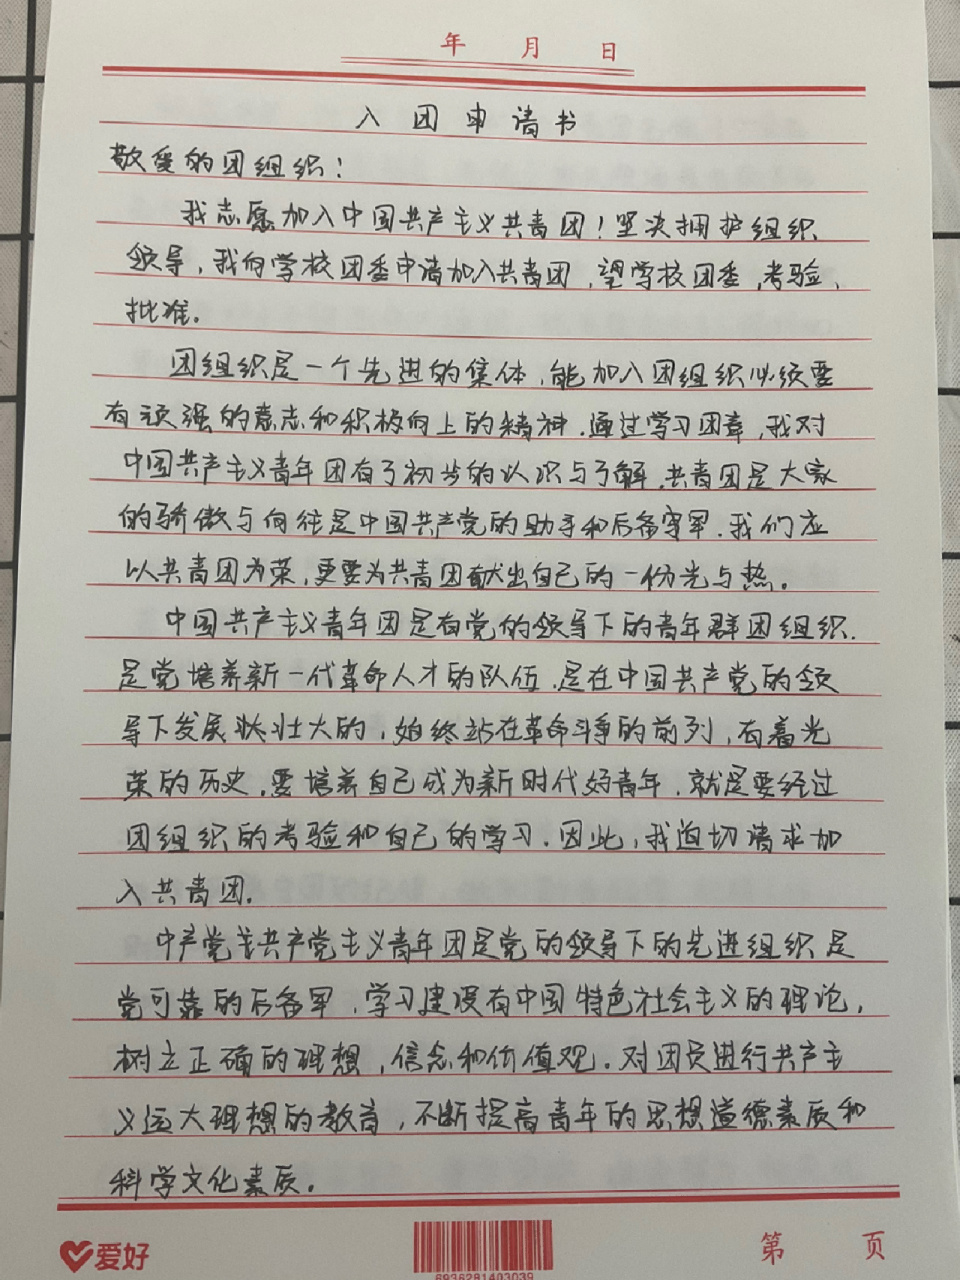 年 月 日
入团申请书
敬爱的团组织！
我志愿加入中国共产主义共青团！坚决拥护组织
领导，我向学校团委申请加入共青团，望学校团委，考验，
批准.
团组织是一个先进的集体，能加入团组织必须要
有顽强的意志和积极向上的精神.通过学习团章，我对
中国共产主义青年团有了初步的认识与了解，共青团是大家
的骄傲与向往是中国共产党的助手和后备守军.我们应
以共青团为荣，更要为共青团献出自己的一份光与热.
中国共产主义青年团是由党的领导下的青年群团组织.
是党培养新一代革命人才的队伍，是在中国共产党的领
导下发展状壮大的，始终站在革命斗争的前列，有着光
荣的历史，要培养自己成为新时代好青年，就是要经过
团组织的考验和自己的学习.因此，我迫切请求加
入共青团.
中产党共产党主义青年团是党的领导下的先进组织是
党可靠的后备军，学习建设有中国特色社会主义的理论，
树立正确的理想，信念和价值观.对团员进行共产主
义运大理想的教育，不断提高青年的思想道德素质和
科学文化素质.
爱好
6936281403039
第 页